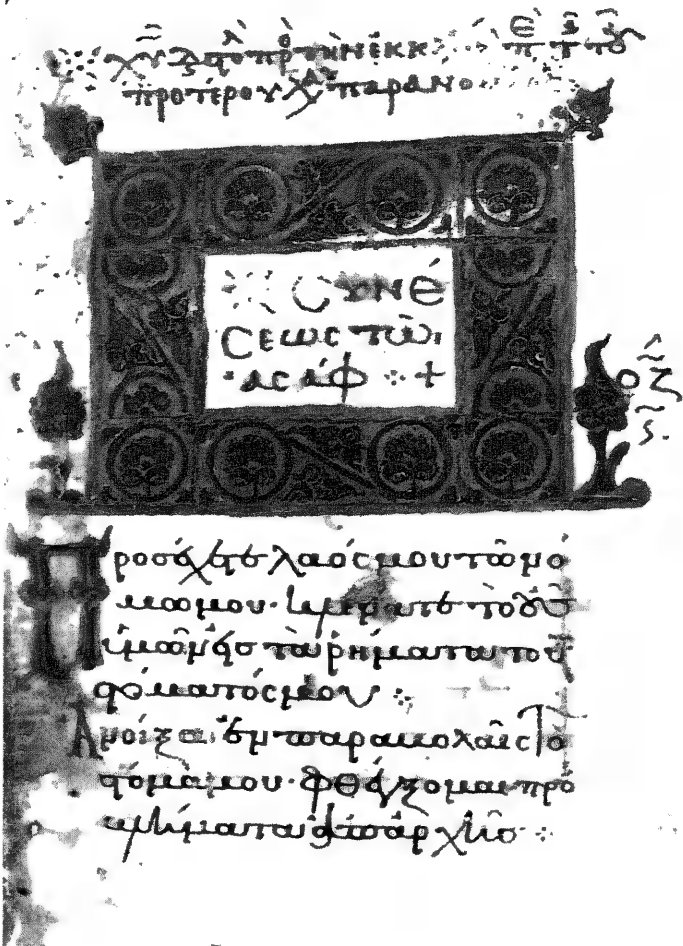 τὴν ἐκκ
προτέρου παρανο
Συνέ
σεως τῶι
ἀσάφ +
οζ
Προσέχετε λαός μου τῶ νό
μω μου· κλίνατε τὸ οὖς
ὑμῶν εἰς τὰ ῥήματα τοῦ
στόματός μου
Ἀνοίξω ἐν παραβολαῖς τὸ
στόμα μου· φθέγξομαι προ
βλήματα ἀπαρχῆς